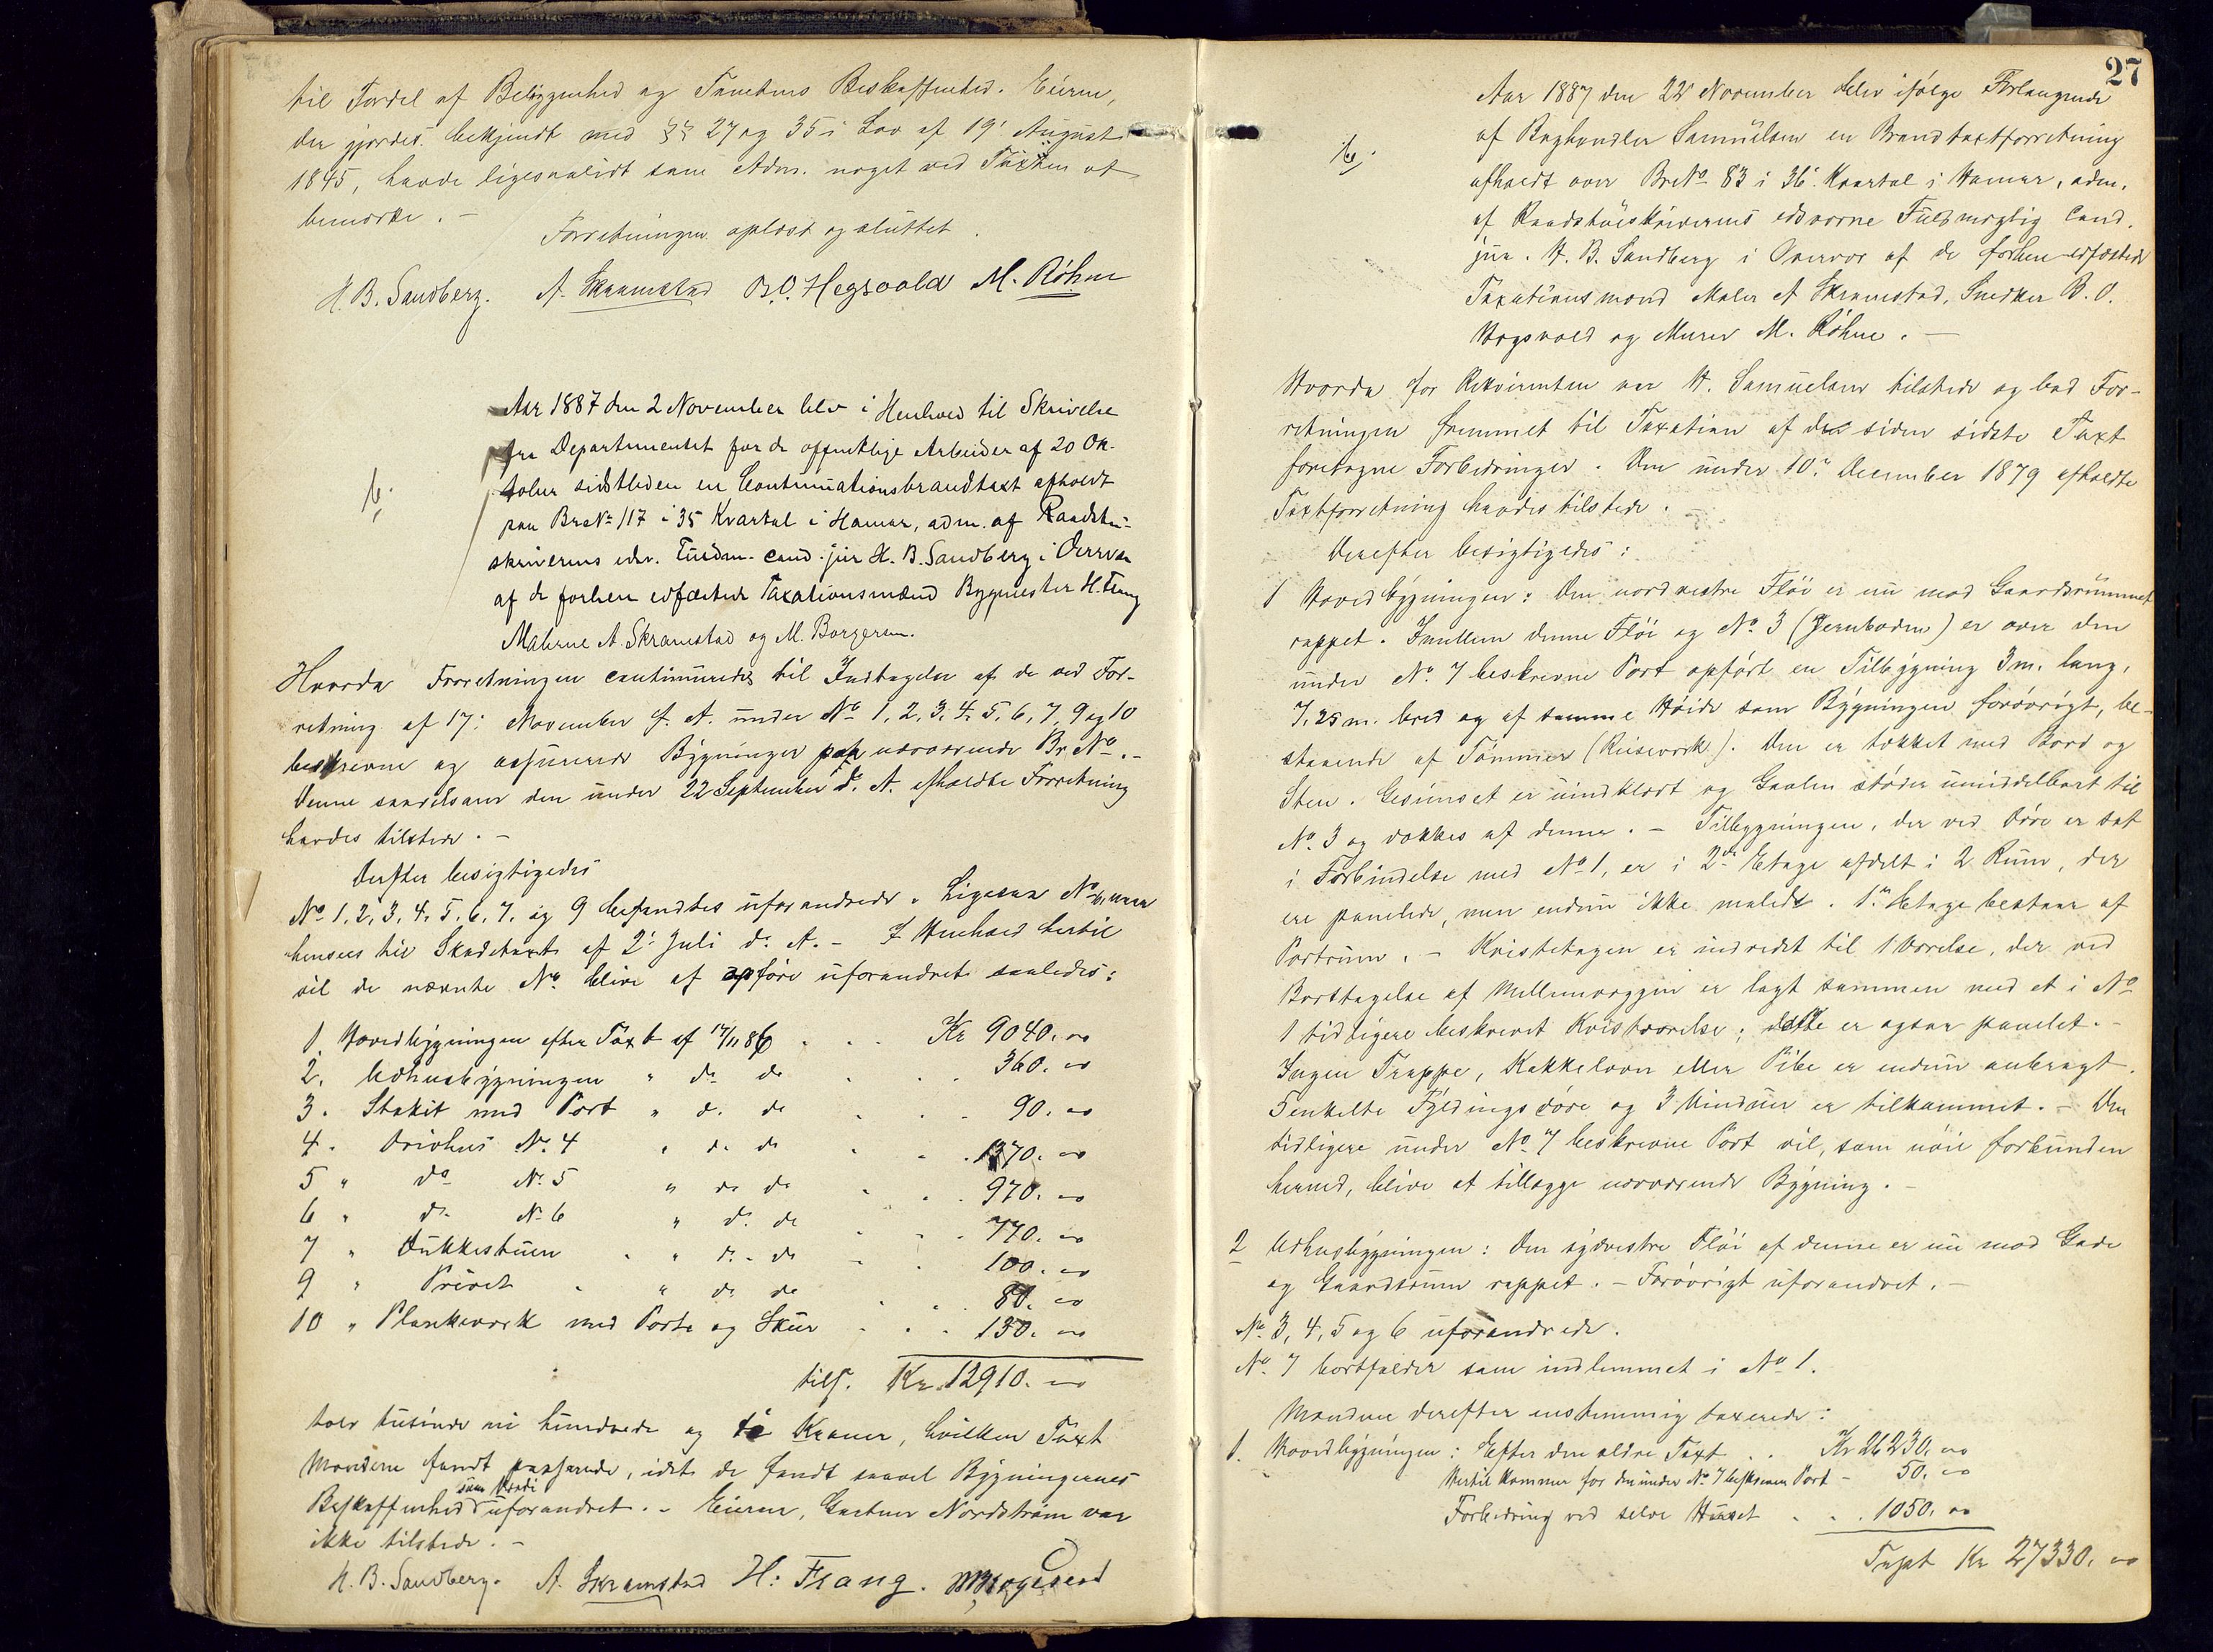 til Fordel af Beliggenhed og Tomtens Beskaffenhed. Eieren,
der gjordes bekjendt med §§ 27 og 35 i Lov af 19' August
1845, havde ligesaalidt som Adm. noget ved Taxten at
bemærke. –
Forretningen oplæst og sluttet.
H. B. Sandberg. A. Skramstad B. O. Hegsvold M. Röhne
Aar 1887 den 2 November blev i Henhold til Skrivelse
fra Departementet for de offentlige Arbeider af 20 Ok-
tober sidstleden en Continuationsbrandtaxt afholdt
paa Br.No 117 i 35 Kvartal i Hamar, adm. af Raadstu-
skriverens edsv. Fuldm. cand. jur H. B. Sandberg i Overvær
af de forhen edfæstede Taxationsmænd Bygmester H. Frang
Malerne A. Skramstad og M. Borgersen.
Hvorda Forretningen continueredes til Indtagelse af de ved For-
retning af 17' November f. A. under No 1, 2, 3, 4, 5, 6, 7, 9 og 10
beskrevne og assurerede Bygninger paa nærværende Br.No. –
Denne saavelsom den under 22 September d. A. afholdte Forretning
havdes tilstede. –
Derfter besigtigedes
No 1, 2, 3, 4, 5, 6, 7, og 9 befandtes uforandrede. Ligesaa No 10,
henseet til Skadetaxt af 2' Juli d. A. – I Henhold hertil
vil de nævnte No blive at opføre uforandret saaledes:
1. Hovedbygningen efter Taxt af 17/11 86 . . . Kr 9040. 00
2. Udhusbygningen " do do . . . 360. 00
3. Stakit med Port " do do . . . 90. 00
4. Drivhus No. 4 " do do . . . 1370. 00
5 " do No. 5 " do do . . . 970. 00
6 " do No 6 " do do . . . 770. 00
7 " Dukkestuen . " do do . . . 100. 00
9 " Privet . " do do . . . 80. 00
10 " Plankeværk med Porte og Skur . . . 130. 00
tils. Kr. 12910. 00
tolv tusinde ni hundrede og ti Kroner, hvilken Taxt
Mændene fandt passende, idet de fandt saavel Bygningernes
Beskaffenhed som Værdi uforandret. – Eieren, Gartner Nordström var
ikke tilstede. –
H. B. Sandberg. A. Skramstad H: Frang. M Borgersen
27
Aar 1887 den 22' November blev ifølge Forlangende
af Boghandler Samuelsen en Brandtaxtforretning
afholdt over Br.No 83 i 36' Kvartal i Hamar, adm.
af Raadstueskriverens edsvorne Fuldmægtig Cand.
jur. H. B. Sandberg i Overvær af de forhen edfæstede
Taxationsmænd Maler A Skramstad, Snedker B. O.
Hegsvold og Murer M. Röhne. –
Hvorda for Rekvirenten var H. Samuelsen tilstede og bad For-
retningen fremmet til Taxation af de siden sidste Taxt
foretagne Forbedringer. Den under 10' December 1879 afholdte
Taxtforretning havdes tilstede. –
Derefter besigtigedes:
1 Hovedbygningen: Den nordvestre Fløi er nu mod Gaardsrummet
rappet. Imellem denne Fløi og No. 3 (Jernboden) er over den
under No. 7 beskrevne Port opført en Tilbygning 3 m. lang,
7,25 m. bred og af samme Høide som Bygningen forøvrigt, be-
staaende af Tømmer (Reisverk). Den er tækket med Bord og
Sten. Gesimset er uindklædt og Gavlen støder umiddelbart til
No. 3 og dækkes af denne. – Tilbygningen, der ved Døre er sat
i Forbindelse med No 1, er i 2den Etage afdelt i 2 Rum, der
ere panelede, men endnu ikke malede. 1' Etage bestaar af
Portrum. – Kvistetagen er indredet til 1 Værelse, der ved
Borttagelse af Mellemvæggen er lagt sammen med et i No
1 tidligere beskrevet Kvistværelse; dette er ogsaa panelet. –
Ingen Trappe, Kakkelovn eller Pibe er endnu anbragt.
5 enkelte Fyldingsdøre og 3 Vinduer er tilkommet. – Den
tidligere under No. 7 beskrevne Port vil, som nøie forbunden
hermed, blive at tillægge nærværende Bygning. –
2 Udhusbygningen: Den sydvestre Fløi af denne er nu mod Gade
og Gaardsrum rappet. – Forøvrigt uforandret. –
No. 3, 4, 5 og 6 uforandrede.
No. 7 bortfalder som indlemmet i No 1.
Mændene derefter enstemmig taxerede:
1. Hovedbygningen: Efter den ældre Taxt . . Kr 26230. 00
Hertil kommer for den under No. 7 beskrevne Port – 50. 00
Forbedring ved selve Huset . . . 1050. 00
Taxt Kr 27330. 00